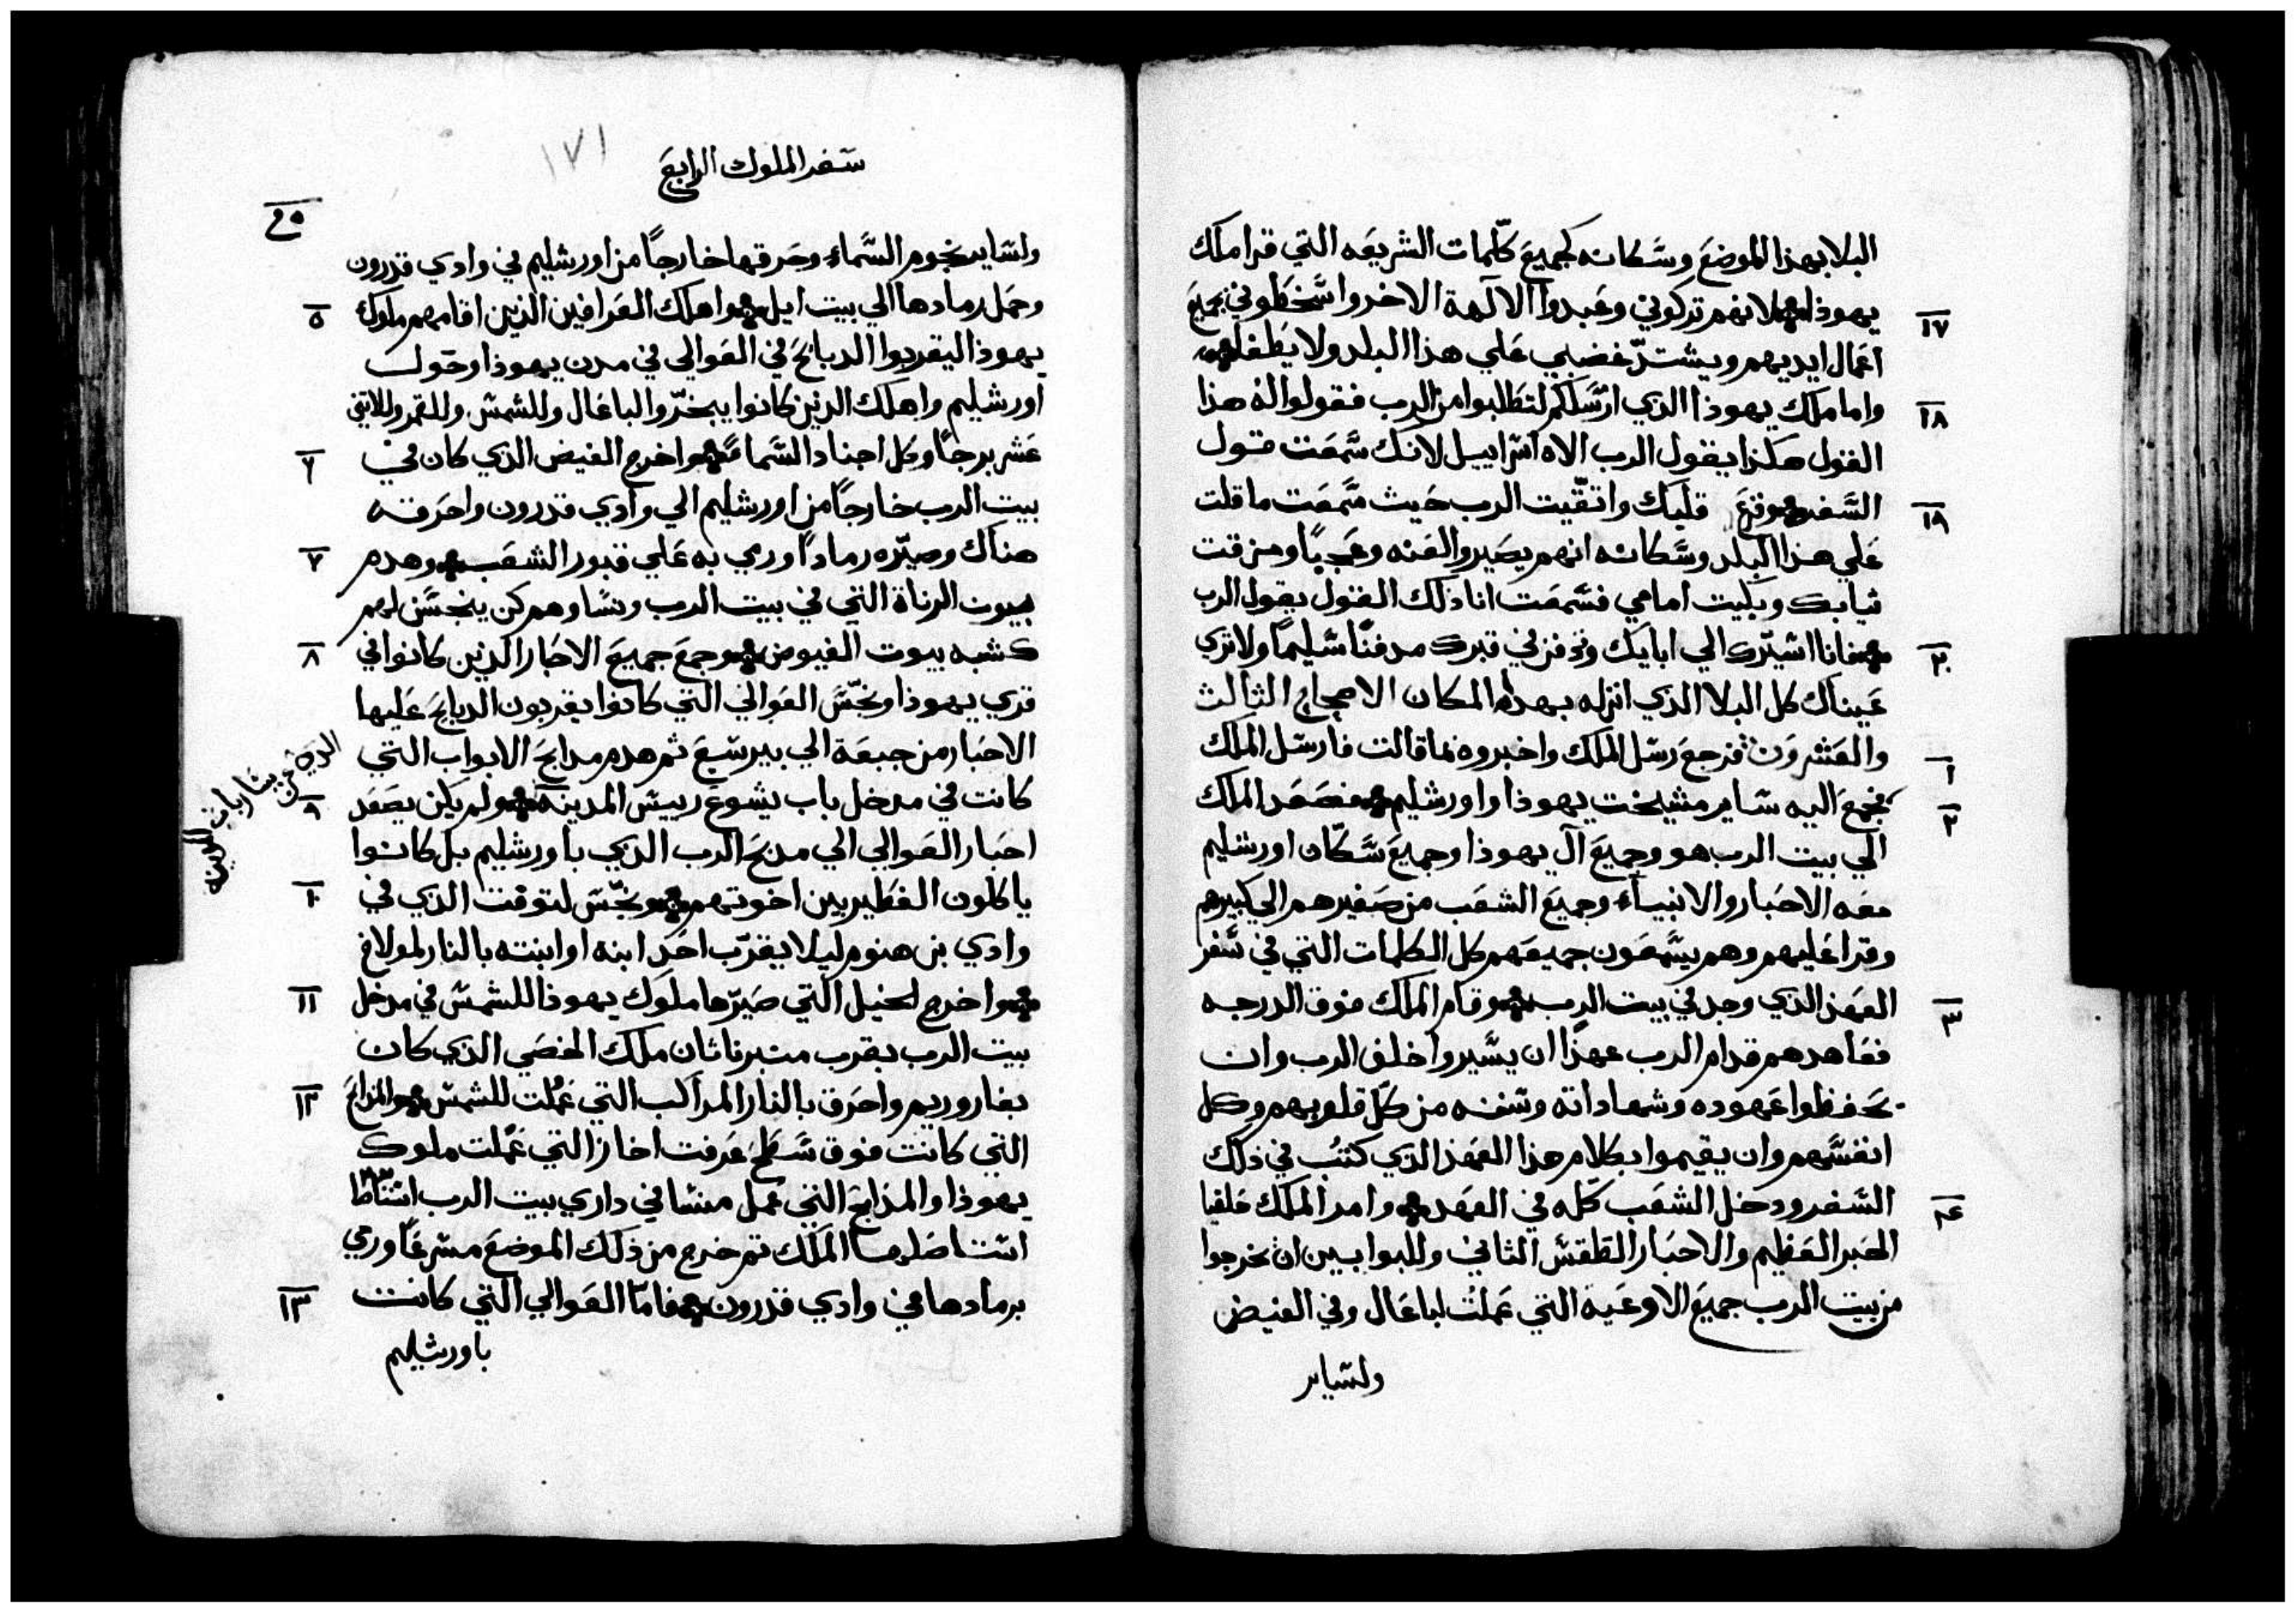 البلا بهذا الموضع وسكانه كجميع كلمات الشريعه التي قرا ملك
١٧
يهوذا لانهم تركوني وعبدوا الالهة الاخر واسخطوني بجميع
اعمال ايديهم ويشتد غضبي علي هذا البلد ولا يطفا
١٨
واما ملك يهوذا الذي ارسلكم لتطالبوا من الرب فقولوا له هذا
القول هكذا يقول الرب الاه اسراييل لانك سمعت قول
١٩
السفر وفزع قلبك واتقيت الرب حيث سمعت ما قلت
علي هذا البلد وسكانه انهم يصيروا لعنه وعجبًا ومزقت
ثيابك وبكيت امامي فسمعت انا ذلك القول يقول الرب
٢٠
فانا اسيرك الي ابايك وتدفن في قبرك مدفنًا سليمًا ولا تري
عيناك كل البلا الذي انزله بهذا المكان الاصحاح الثالث
١
والعشرون فرجع رسل الملك واخبروه بما قالت فارسل الملك
٢
فجمع اليه ساير مشيخت يهوذا واورشليم فصعد الملك
الي بيت الرب هو وجميع آل يهوذا وجميع سكان اورشليم
معه الاحبار والانبياء وجميع الشعب من صغيرهم الي كبيرهم
وقرا عليهم وهم يسمعون جميعهم كل الكلمات التي في سفر
٣
العهد الذي وجد في بيت الرب وقام الملك فوق الدرجه
فعاهدهم قدام الرب عهدًا ان يسيروا خلف الرب وان
يحفظوا عهوده وشهاداته وسننه من كل قلوبهم وكل
انفسهم وان يقيموا بكلام هذا العهد الذي كتب في ذلك
٤
السفر ودخل الشعب كله في العهد وامر الملك خلقيا
الحبر العظيم والاحبار الطقس الثاني وللبوابين ان يخرجوا
من بيت الرب جميع الاوعيه التي عملت لباعال وفي الغيض
ولساير
١٧١
سفر الملوك الرابع
ولساير نجوم السماء وحرقها خارجًا من اورشليم في وادي قدرون
٥
وحمل رمادها الي بيت ايل واهلك العرافين الذين اقامهم ملوك
يهوذا ليقربوا الدبايح في العوالي في مدن يهوذا وحول
اورشليم واهلك الذين كانوا يبخروا لباعال وللشمس وللقمر وللاثني
٦
عشر برجًا وكل اجناد السما واخرج الغيض الذي كان في
بيت الرب خارجًا من اورشليم الي وادي قدرون واحرقه
٧
هناك وصيره رمادًا ورمي به علي قبور الشعب وهدم
بيوت الزناة التي في بيت الرب ونساوهم كن ينسجن لهم
٨
كشبه بيوت الغيوض وجمع جميع الاحبار الذين كانوا في
قري يهوذا ونجس العوالي التي كانوا يقربون الدبايح عليها
الاحبار من جبعة الي بيرسبع ثم هدم مدابح الابواب التي
الذي عن يسار باب المدينه
٩
كانت في مدخل باب يشوع رييس المدينة ولم يكن يصعد
احبار العوالي الي مدبح الرب الذي باورشليم بل كانوا
١٠
ياكلون الفطير بين اخوتهم ونجس لتوفت الذي في
وادي بن هنوم ليلا يقرب احد ابنه او ابنته بالنار لمولاخ
١١
واخرج الخيل التي صيرها ملوك يهوذا للشمس في مدخل
بيت الرب بقرب منبر ناثان ملك الخصي الذي كان
١٢
بفاروريم واحرق بالنار المراكب التي عملت للشمس والمذابح
التي كانت فوق سطح غرفت احاز التي عملت ملوك
يهوذا والمذابح التي عمل منسا في داري بيت الرب
استاصلها الملك ثم خرج من ذلك الموضع مسرعًا ورمي
١٣
برمادها في وادي قدرون فاما العوالي التي كانت
باورشليم